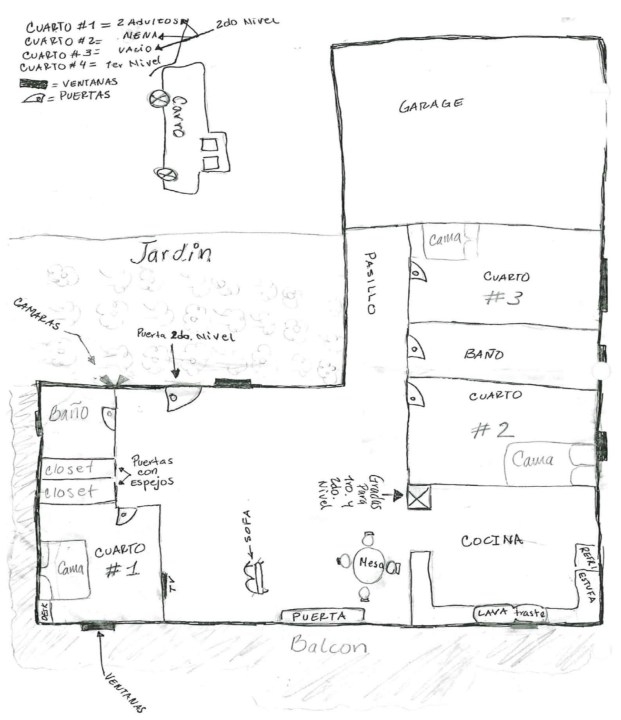 CUARTO #1 = 2 Adultos
2do Nivel
CUARTO #2 = NENA
CUARTO #3 = VACIO
CUARTO #4 = 1er Nivel
= VENTANAS
= PUERTAS
Carro
GARAGE
Jardin
PASILLO
Cama
CUARTO
#3
CAMARAS
Puerta 2do. Nivel
BAÑO
CUARTO
#2
Cama
Baño
closet
closet
Puertas
con
Espejos
Gradas
Para
1ro. y
2do.
Nivel
COCINA
REFRI
ESTUFA
LAVA traste
SOFA
Mesa
CUARTO
#1
Cama
TV
PUERTA
Balcon
VENTANAS